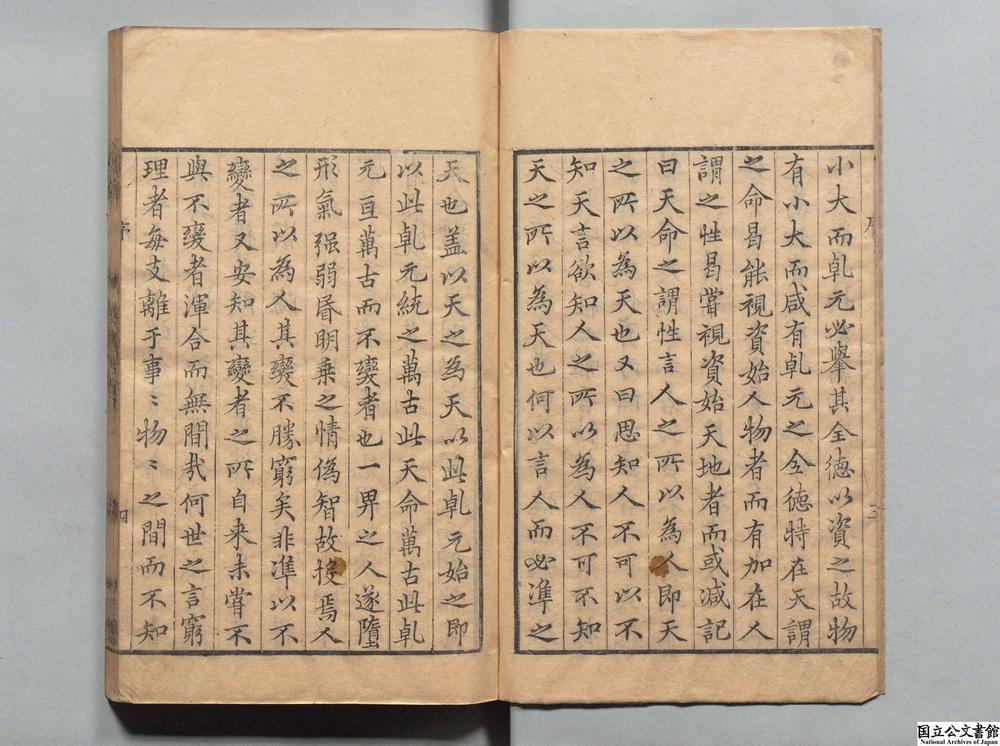 小大而乹元必舉其全徳以資之故物
有小大而咸有乹元之全徳特在天謂
之命曷能視資始人物者而有加在人
謂之性曷甞視資始天地者而或减記
曰天命之謂性言人之所以為人即天
之所以為天也又曰思知人不可以不
知天言欲知人之所以為人不可不知
天之所以為天也何以言人而必凖之
天也盖以天之為天以此乹元始之即
以此乹元統之萬古此天命萬古此乹
元亘萬古而不變者也一畀之人遂墮
形氣强弱昬明乗之情偽智故投焉人
之所以為人其變不勝窮矣非凖以不
變者又安知其變者之所自来未甞不
與不變者渾合而無間哉何世之言窮
理者每支離于事〻物〻之間而不知
序
四
国立公文書館
National Archives of Japan